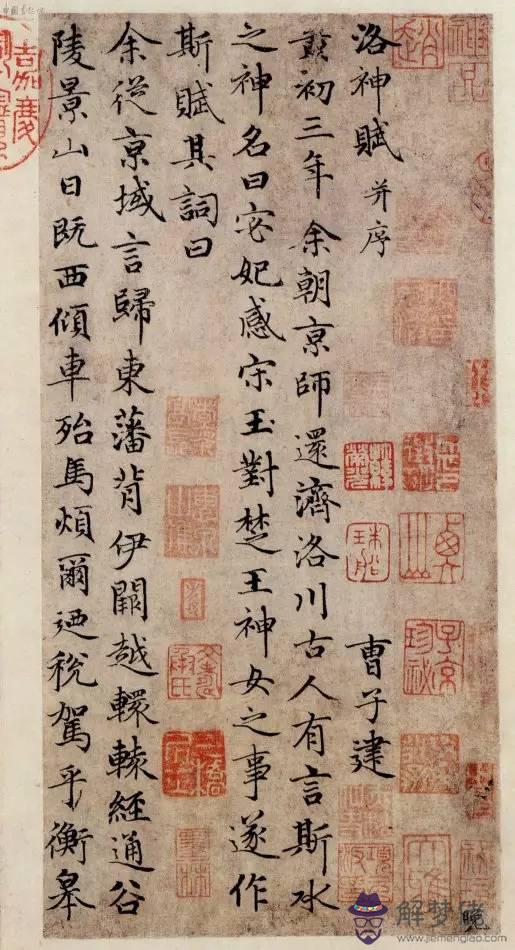 洛神賦 并序 曹子建
黄初三年余朝京師還濟洛川古人有言斯水
之神名曰宓妃感宋玉對楚王神女之事遂作
斯賦其詞曰
余從京域言歸東藩背伊闕越轘轅經通谷
陵景山日既西傾車殆馬煩爾迺稅駕乎衡皋
晚
嘉慶
子京
解梦佬
www.jiemenglao.com